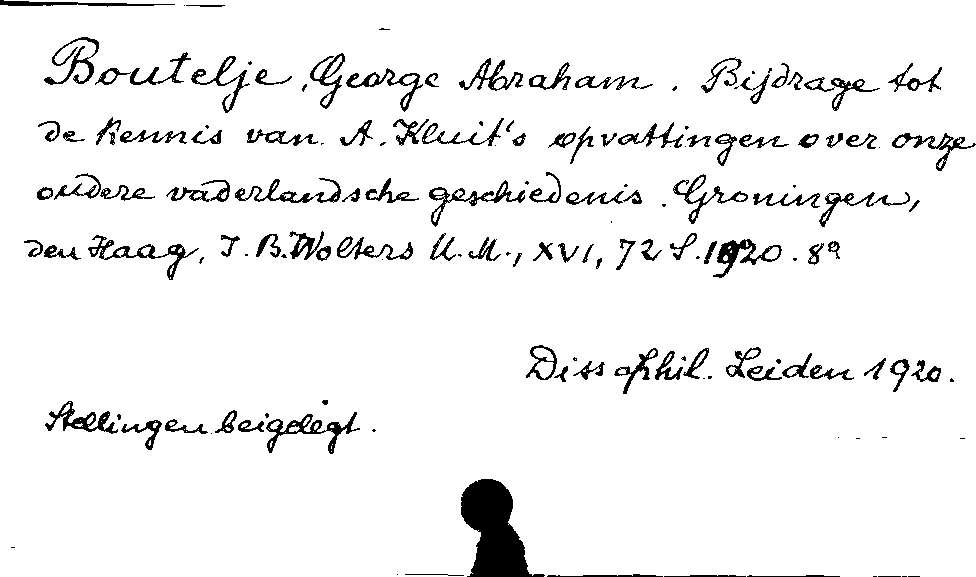 Boutelje, George Abraham. Bijdrage tot
de kennis van A. Kluit's opvattingen over onze
oudere vaderlandsche geschiedenis. Groningen,
den Haag, J. B. Wolters U. M., XVI, 72 S. 1920. 8°
Diss. phil. Leiden 1920.
Stellingen beigelegt.